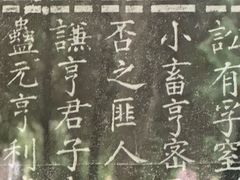 訟有孚窒
小畜亨密
否之匪人
謙亨君子
蠱元亨利